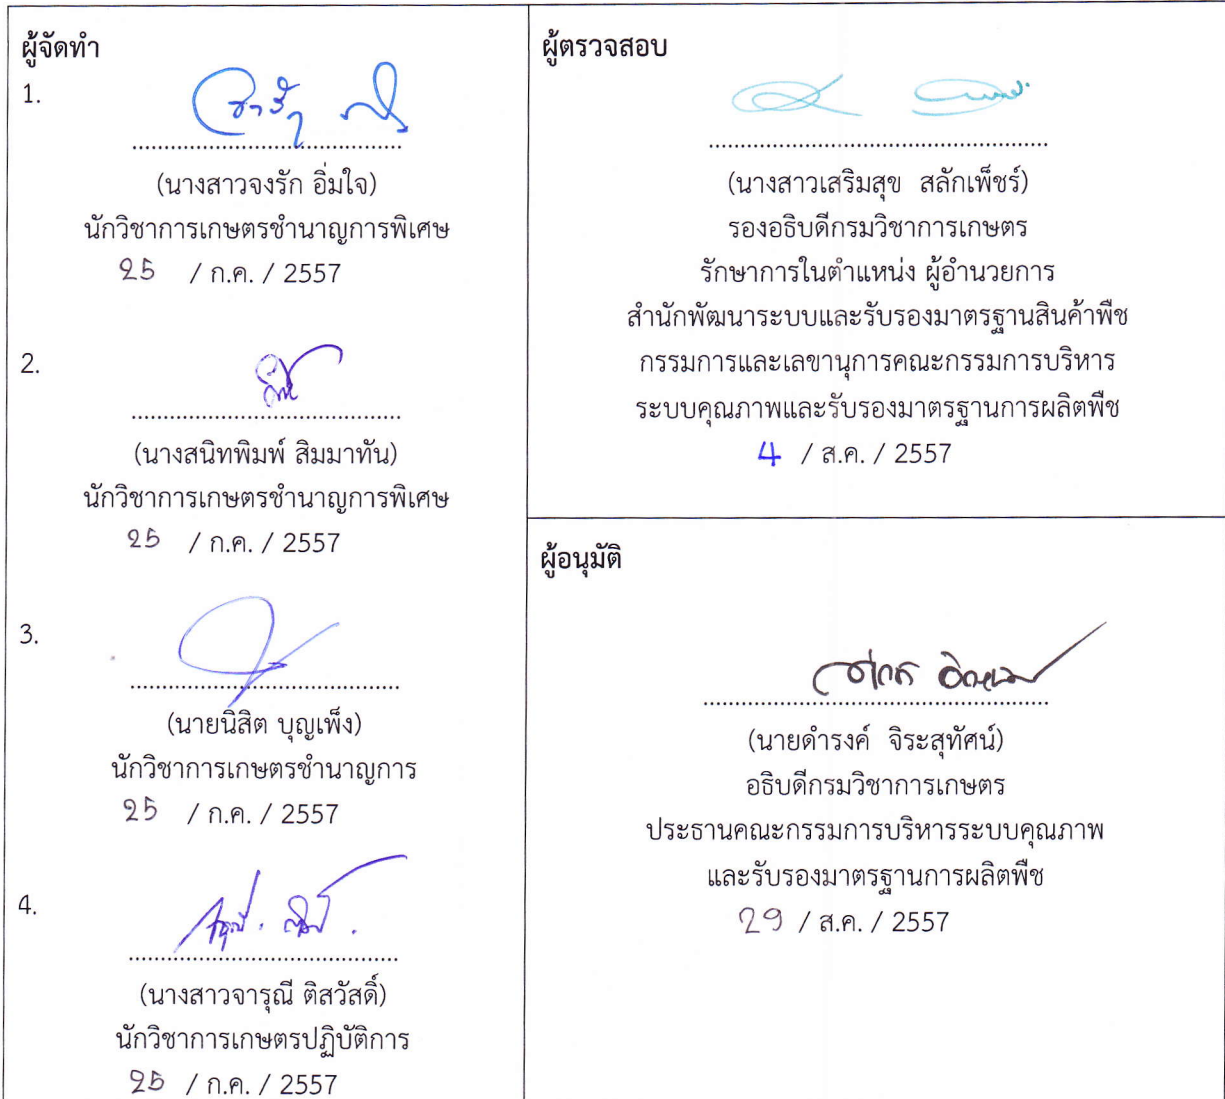 ผู้จัดทำ
1.
(นางสาวจงรัก อิ่มใจ)
นักวิชาการเกษตรชำนาญการพิเศษ
25 / ก.ค. / 2557
2.
(นางสนิทพิมพ์ สิมมาทัน)
นักวิชาการเกษตรชำนาญการพิเศษ
25 / ก.ค. / 2557
3.
(นายนิสิต บุญเพ็ง)
นักวิชาการเกษตรชำนาญการ
25 / ก.ค. / 2557
4.
(นางสาวจารุณี ติสวัสดิ์)
นักวิชาการเกษตรปฏิบัติการ
25 / ก.ค. / 2557
ผู้ตรวจสอบ
(นางสาวเสริมสุข สลักเพ็ชร์)
รองอธิบดีกรมวิชาการเกษตร
รักษาการในตำแหน่ง ผู้อำนวยการ
สำนักพัฒนาระบบและรับรองมาตรฐานสินค้าพืช
กรรมการและเลขานุการคณะกรรมการบริหาร
ระบบคุณภาพและรับรองมาตรฐานการผลิตพืช
4 / ส.ค. / 2557
ผู้อนุมัติ
(นายดำรงค์ จิระสุทัศน์)
อธิบดีกรมวิชาการเกษตร
ประธานคณะกรรมการบริหารระบบคุณภาพ
และรับรองมาตรฐานการผลิตพืช
29 / ส.ค. / 2557